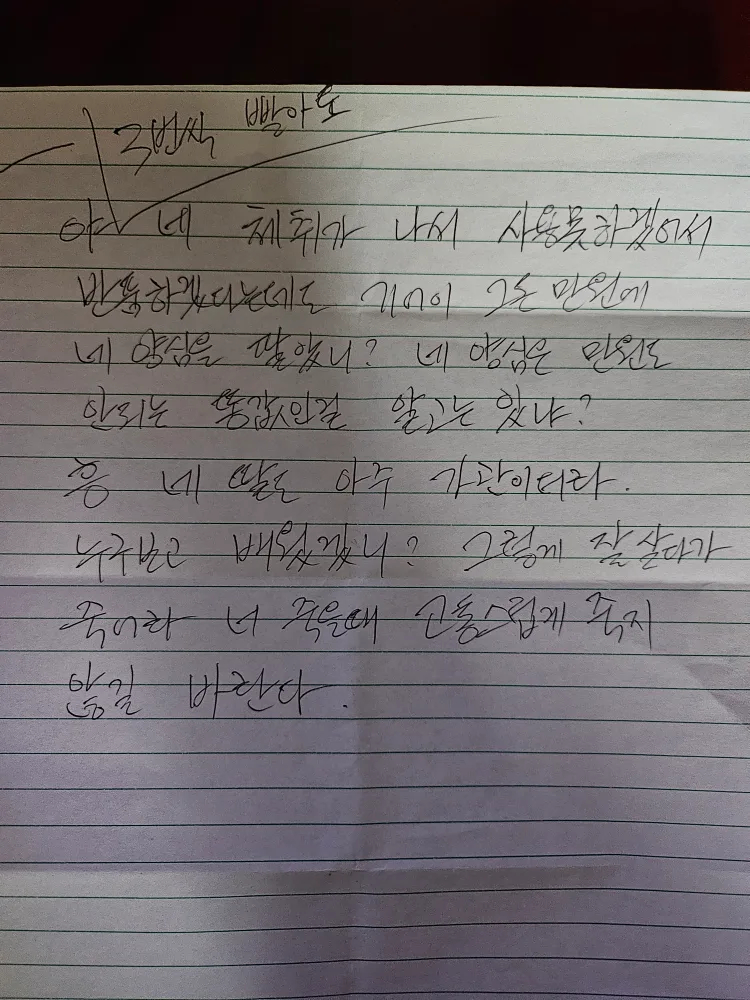 3번씩 빨아도
야 네 체취가 나서 사용못하겠어서
반품하겠다는데도 기어이 그돈 만원에
네 양심을 팔았니? 네 양심은 만원도
안되는 똥값인걸 알고는 있냐?
흥 네 딸도 아주 가관이더라.
누구보고 배웠겠니? 그렇게 잘 살다가
죽어라 너 죽을때 고통스럽게 죽지
않길 바란다.